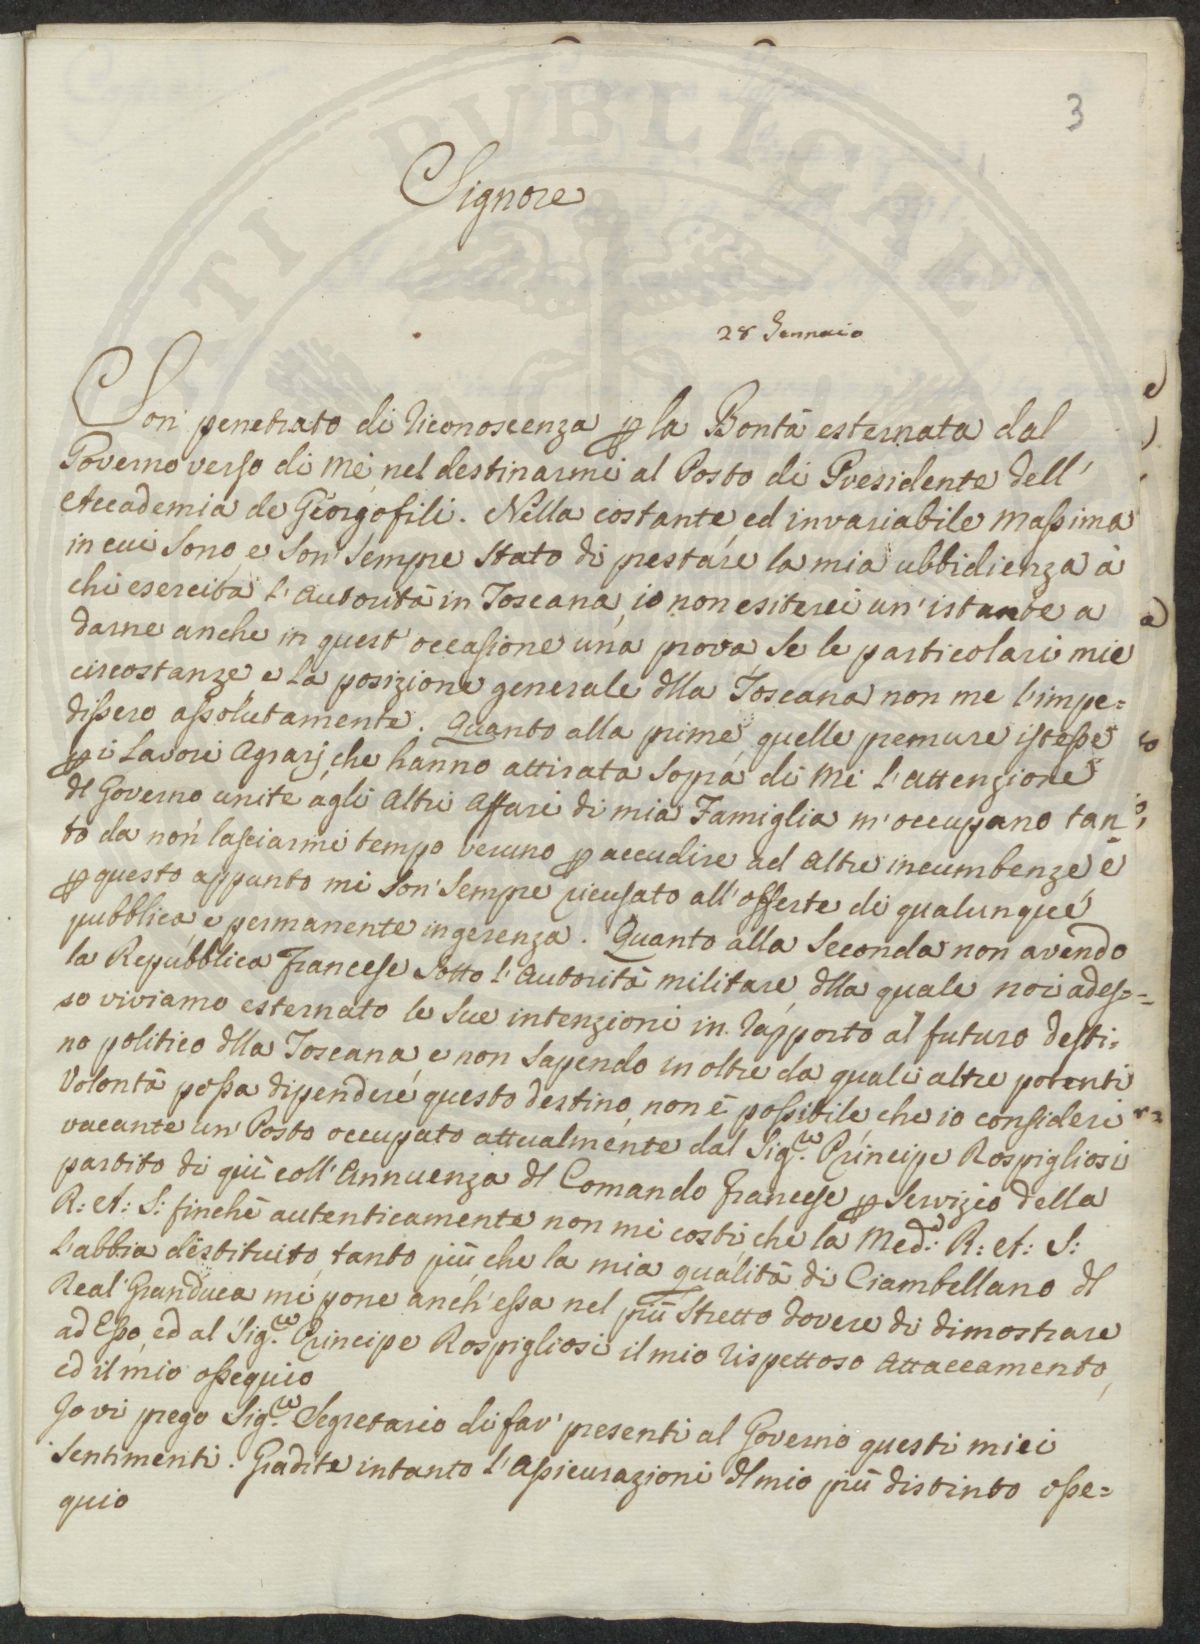 3
Signore
28 Gennaio
Son' penetrato di riconoscenza p la Bontà esternata dal
Governo verso di me, nel destinarmi al Posto di Presidente dell'
Accademia de Georgofili. Nella costante, ed invariabile massima
in cui sono, e son' sempre stato di prestare la mia ubbidienza à
chi esercita l'Autorità in Toscana, io non esiterei un'istante a
darne anche in quest'occasione una prova, se le particolari mie
circostanze e la posizione generale dlla Toscana non me l'impe=
dissero assolutamente. Quanto alla prime, quelle premure istesse
p i Lavori Agrarj, che hanno attirata sopra di me l'attenzione
dl Governo unite agli Altri Affari di mia Famiglia m'occupano tan
to da non lasciarmi tempo veruno p accudire ad Altre incumbenze è
p questo appunto mi son' sempre ricusato all'offerte di qualunque
pubblica e permanente ingerenza. Quanto alla seconda non avendo
la Repubblica francese sotto l'Autorità militare dlla quale noi ades=
so viviamo esternato le sue intenzioni in rapporto al futuro desti=
no politico dlla Toscana, e non sapendo inoltre da quali altre potenti
Volontà possa dipendere questo destino, non è possibile che io consideri
vacante un' Posto occupato attualmente dal Sig.re Principe Rospigliosi
partito di quì coll'Annuenza dl Comando francese p servizio della
R: A: S: finchè autenticamente non mi costi, che la Med.a R: A: S:
l'abbia destituito, tanto più che la mia qualità di Ciambellano dl
Real Granduca mi pone anch'essa nel più stretto dovere di dimostrare
ad Esso, ed al Sig.re Principe Rospigliosi il mio rispettoso attaccamento,
ed il mio ossequio
Io vi prego Sig.re Segretario di far' presenti al Governo questi miei
sentimenti. Gradite intanto l'Assicurazioni dl mio più distinto osse=
quio
ATTI PUBLICAE